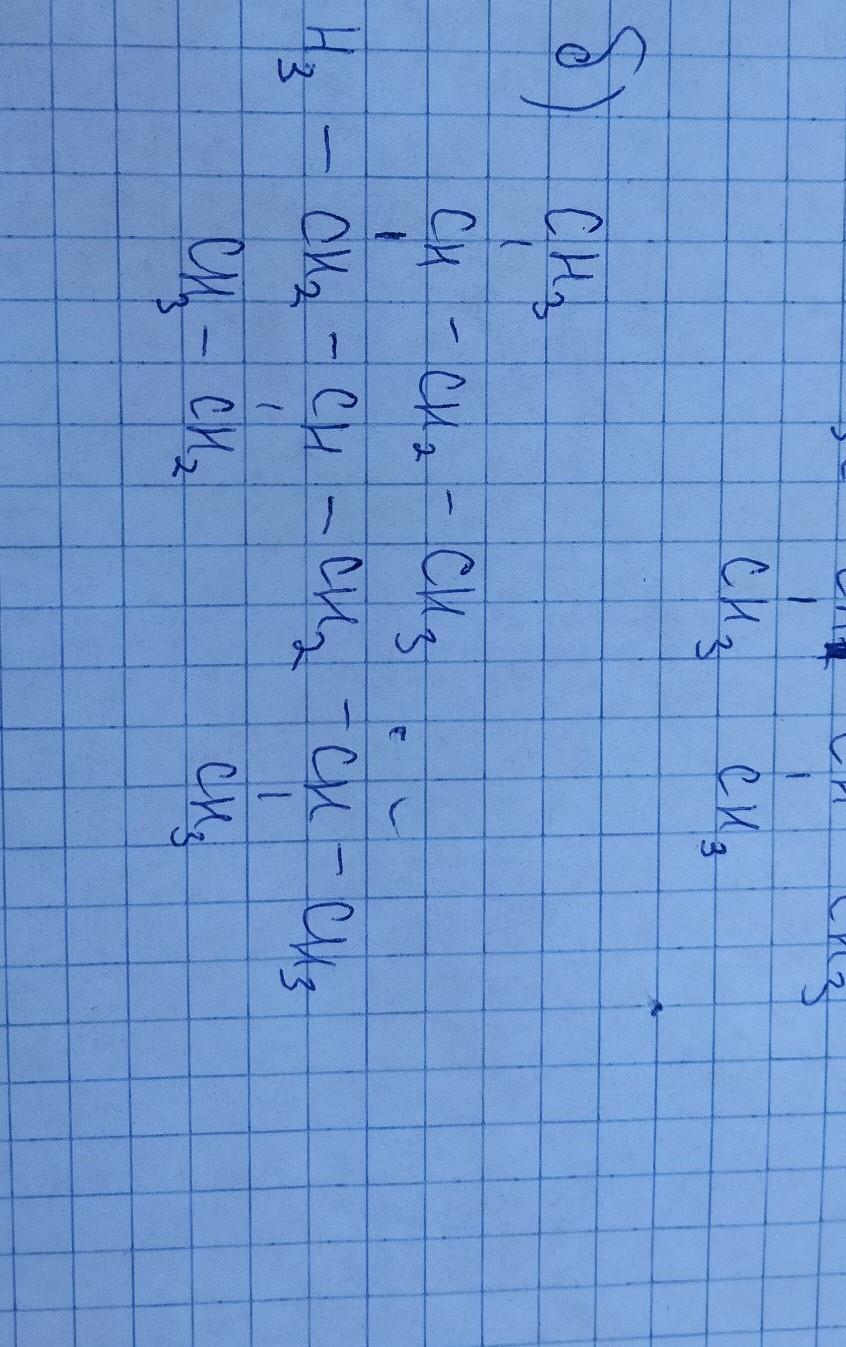 CH3 CH3
б) CH3
CH - CH2 - CH3
H3 - CH2 - CH - CH2 - CH - CH3
CH3 - CH2 CH3